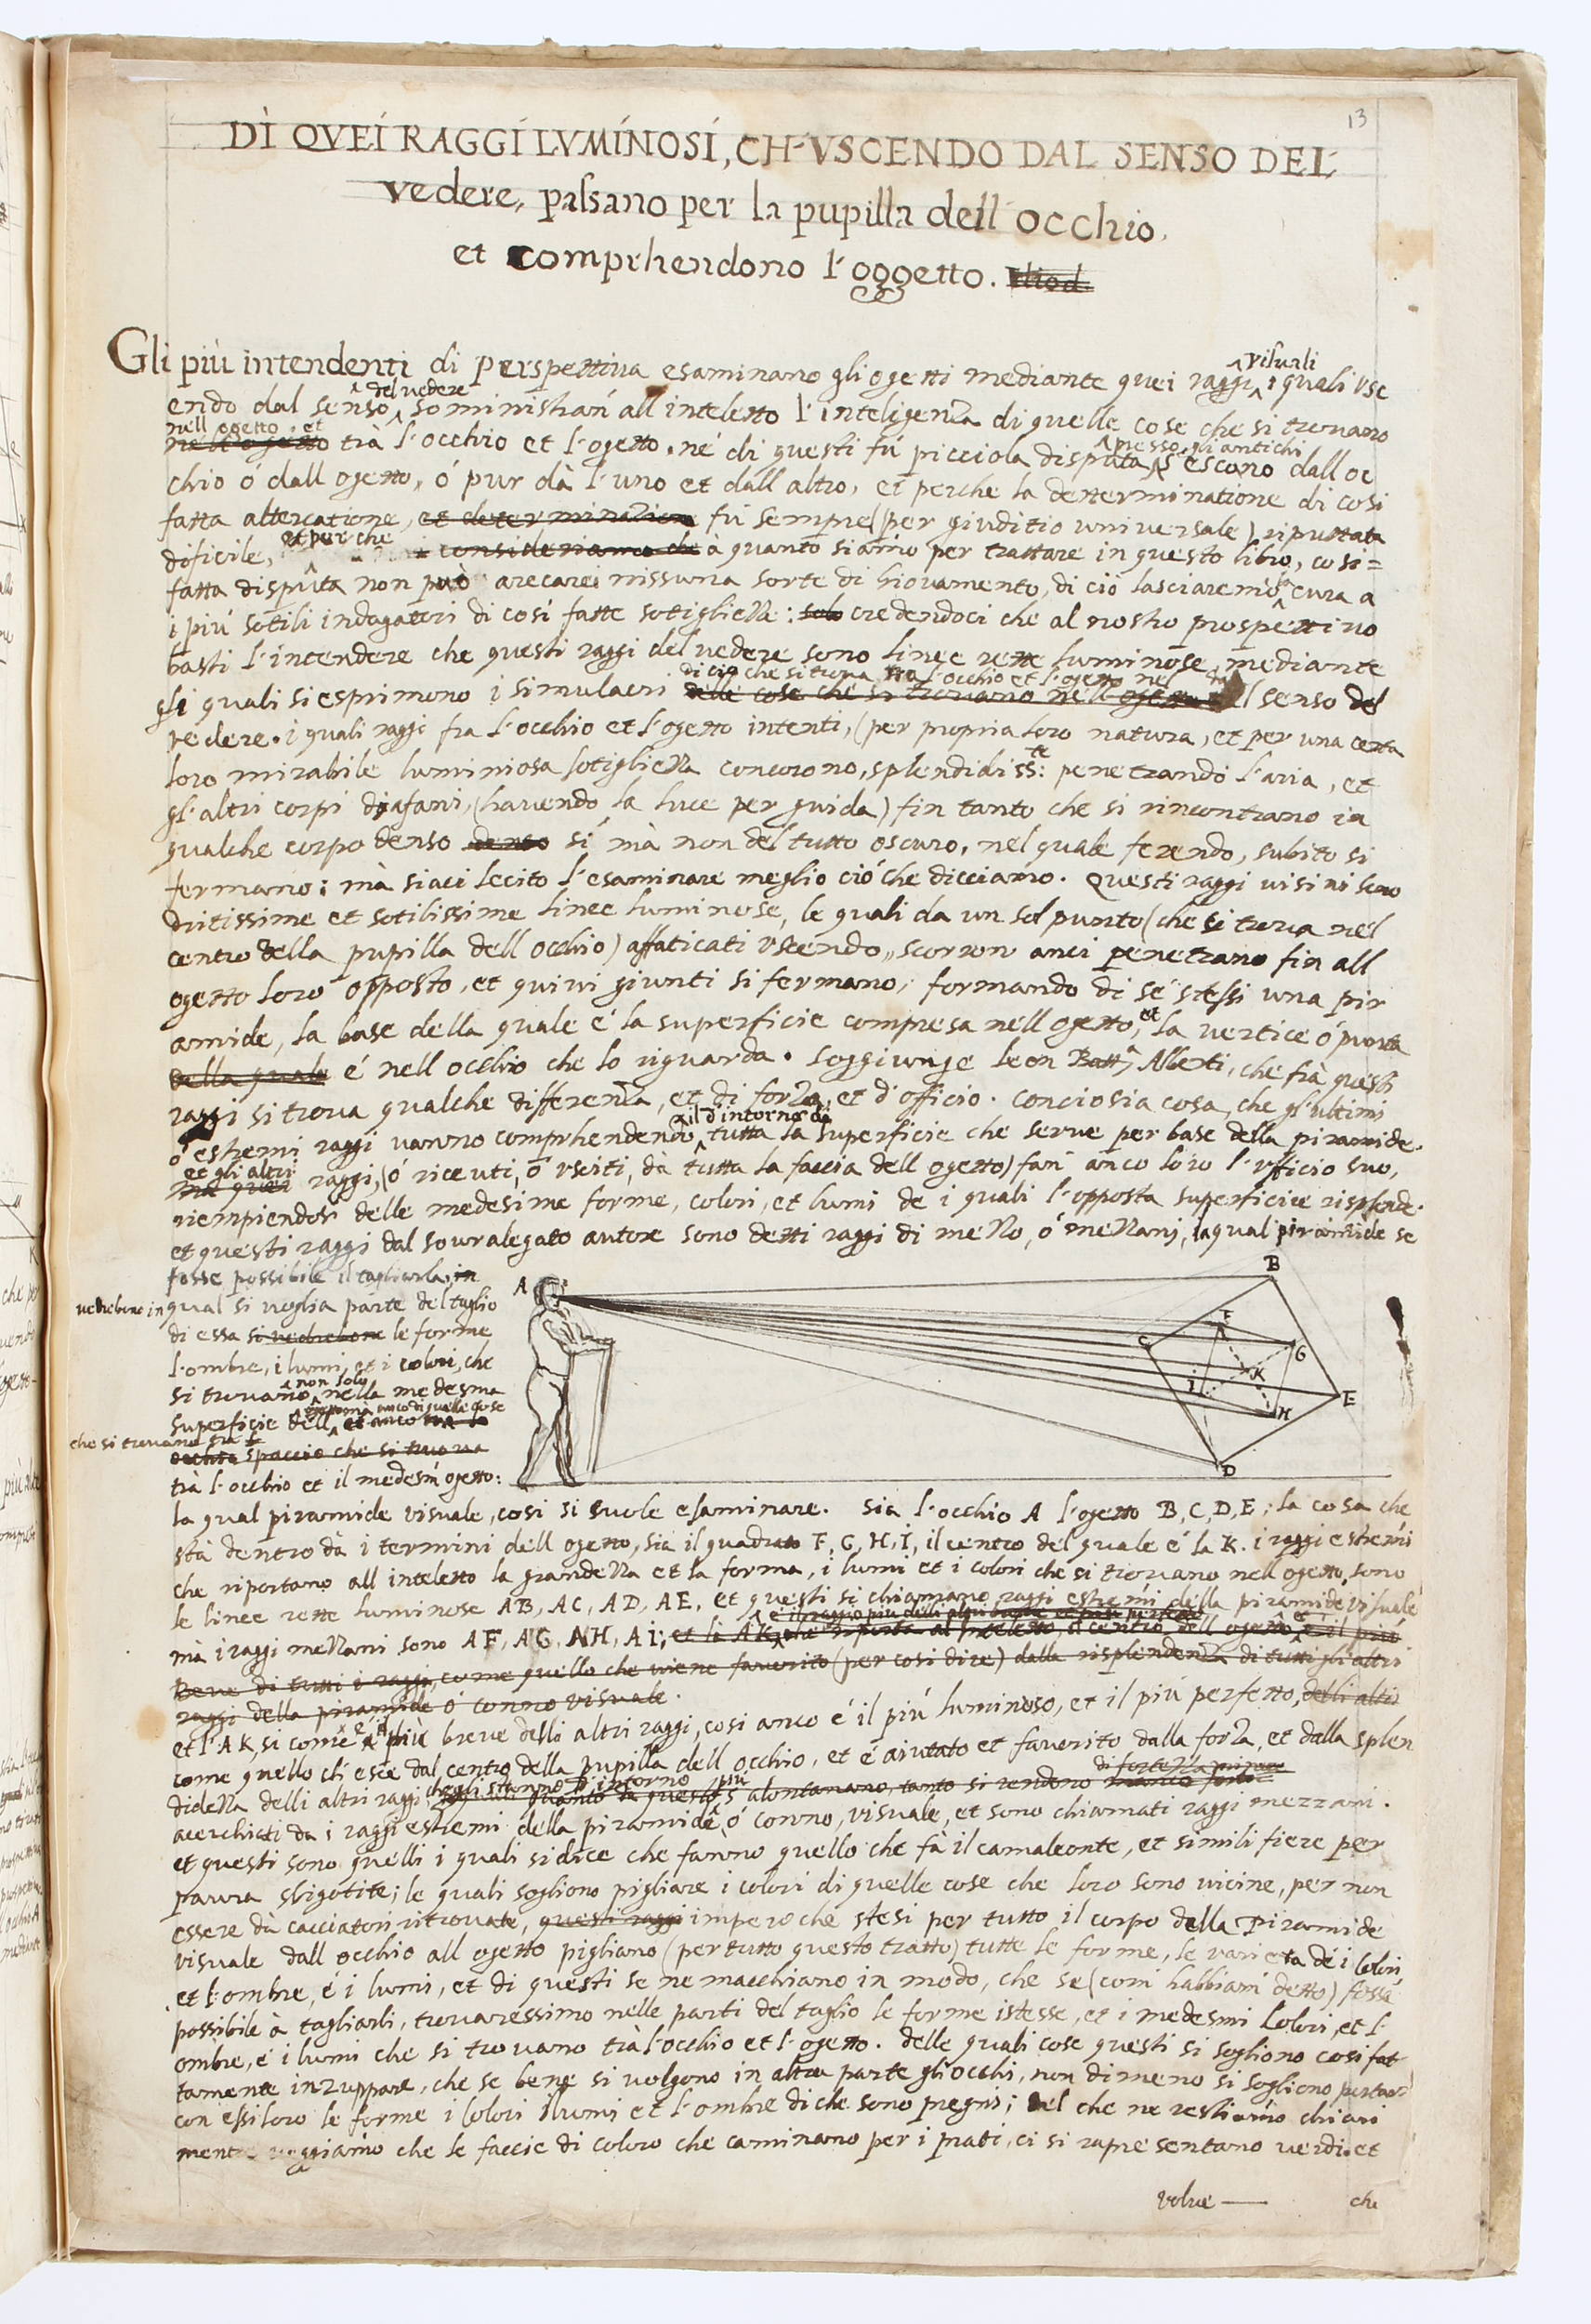 13
DI QVEI RAGGI LVMINOSI, CH'VSCENDO DAL SENSO DEL
vedere, passano per la pupilla dell'occhio,
et comprhendono l'oggetto.
Gli più intendenti di perspettiua esaminano gli ogetti mediante quei raggi visuali i quali vsc
endo dal senso del vedere, soministran' all'inteletto l'inteligenza di quelle cose che si trouano
nell ogetto, et trà l'occhio et l'ogetto. né di questi fù picciola disputa presso gli antichi s'escano dall oc
chio ó dall ogetto, ó pur dà l'uno et dall altro, et perche la determinatione di cosi
fatta altercatione, et determinazione fù sempre (per giuditio uniuersale) riputtata
dificile, et perche consideriamo che à quanto siamo per trattare in questo libro, cosi=
fatta disputa non può arecarci nissuna sorte di giouamento, di ciò lasciaremo cura a
i piú sotili indagatori di cosí fatte sotigliezze: solo credendoci che al nostro prospettiuo
basti l'intendere che questi raggi del vedere sono linee rette luminose, mediante
gli quali si esprimono i simulacri di ciò che si troua tra l'occhio et l'ogetto delle cose che si trouano nell ogetto nel senso del
vedere. i quali raggi fra l'occhio et l'ogetto intenti, (per propria loro natura, et per una certa
loro mirabile luminiosa sotigliezza concorono, splendidiss:te penetrando l'aria, et
gl'altri corpi diafani, (hauendo la luce per guida) fin tanto che si rincontrano in
qualche corpo denso denso sí mà non del tutto oscuro, nel quale ferendo, subito si
fermano; mà siaci lecito l'esaminare meglio ció che dicciamo. Questi raggi uisiui sono
dritissime et sotilissime linee luminose, le quali da un sol punto (che si troua nel
centro della pupilla dell occhio) affaticati vscendo, scorron anci penetrano fin all
ogetto loro opposto, et quiui giunti si fermano, formando di sé stessi una pir
amide, la base della quale é la superficie compresa nell ogetto, et la vertice ó punta
della quale é nell occhio che lo riguarda. Soggiunge Leon Batt. Alberti, che frà questi
raggi si troua qualche differenza, et di forza, et d'officio. conciosia cosa, che gl'ultimi
ó estremi raggi vanno comprhendendo il d'intorno da tutta la superficie che serue per base della piramide.
et gli altri ma quei raggi, (ó riceuti, ó vsciti, dà tutta la faccia dell ogetto) fan' anco loro l'vfficio suo,
riempiendosi delle medesime forme, colori, et lumi de i quali l'opposta superficie risplende.
et questi raggi dal souralegato autore sono detti raggi di mezzo, ó mezzani, la qual piramide se
fosse possibile il tagliarla, in
vedrebone in qual si uoglia parte del taglio
di essa si vedrebone le forme
l'ombre, i lumi, et i colori, che
si trouano non solo nella medesma
superficie dell ogetto mà anco di quelle cose
che si trouano
spaccio che si troua
trà l'occhio et il medesm ogetto:
A B C D E F G H I K
la qual piramide visuale, cosi si suole esaminare. Sia l'occhio A l'ogetto B, C, D, E; la cosa che
stà dentro dà i termini dell ogetto, sia il quadrato F, G, H, I, il centro del quale é la K. i raggi estremi
che riportano all inteletto la grandezza et la forma, i lumi et i colori che si trouano nell ogetto, sono
le linee rette luminose AB, AC, AD, AE, et questi si chiamano raggi estremi della piramide visuale
mà i raggi mezzani sono AF, AG, AH, AI; et la AK, che riporta al inteletto il centro dell ogetto, é il più
breue di tutti i raggi, come quello che uiene fauorito (per cosi dire) dalla risplendenza di tutti gli altri
raggi della piramide ó conno visuale.
et l'AK, si come é il più breue delli altri raggi, cosi anco é il più luminoso, et il più perfetto, delli altri
come quello ch'esce dal centro della pupilla dell occhio, et é aiutato et fauorito dalla forza, et dalla splen
didezza delli altri raggi che gli stanno d'intorno quanto da questo più s'alontanano, tanto si rendono
acerchiati da i raggi estremi della piramide, ó conno, visuale, et sono chiamati raggi mezzani.
et questi sono quelli i quali si dice che fanno quello che fà il camaleonte, et simili fiere per
paura sbigotite; le quali sogliono pigliare i colori di quelle cose che loro sono uicine, per non
essere dà cacciatori ritrouate, questi raggi imperoche stesi per tutto il corpo della Piramide
visuale dall occhio all ogetto pigliano (per tutto questo tratto) tutte le forme, le varieta de i colori,
et l'ombre, é i lumi, et di questi se ne macchiano in modo, che se (com' habbiam' detto) fosse
possibile à tagliarli, trouaressimo nelle parti del taglio le forme istesse, et i medesmi colori, et l'
ombre, e i lumi che si trouano trà l'occhio et l'ogetto. delle quali cose questi si sogliono cosi fat
tamente inzuppare, che se bene si uolgono in altra parte gli occhi, non dimeno si sogliono portare
con essi loro le forme i colori i lumi et l'ombre di che sono pregni; del che ne restiamo chiari
mentre ueggiamo che le faccie di coloro che caminano per i prati, ci si rapresentano verdi. et
che